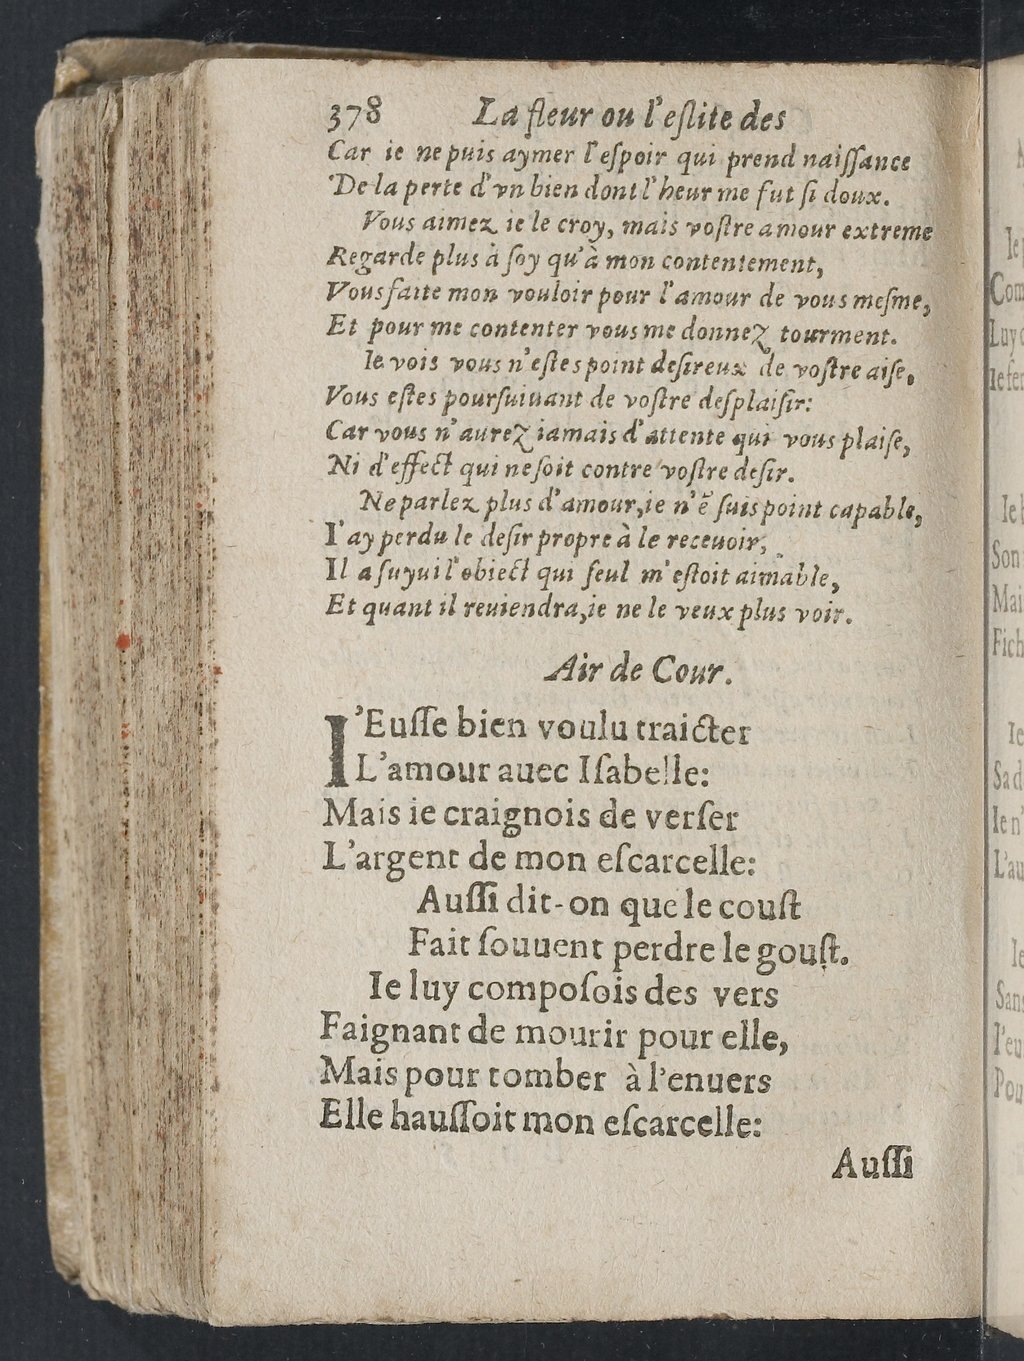 378 La fleur ou l'eſlite des
Car ie ne puis aymer l'eſpoir qui prend naiſſance
De la perte d'vn bien dont l'heur me fut ſi doux.
Vous aimez ie le croy, mais voſtre amour extreme
Regarde plus à ſoy qu'à mon contentement,
Vous faite mon vouloir pour l'amour de vous meſme,
Et pour me contenter vous me donnez tourment.
Ie vois vous n'eſtes point deſireux de voſtre aiſe,
Vous eſtes pourſuiuant de voſtre deſplaiſir:
Car vous n'aurez iamais d'attente qui vous plaiſe,
Ni d'effect qui ne ſoit contre voſtre deſir.
Ne parlez plus d'amour, ie n'ẽ ſuis point capable,
I'ay perdu le deſir propre à le receuoir,
Il a ſuyui l'obiect qui ſeul m'eſtoit aimable,
Et quant il reuiendra, ie ne le veux plus voir.
Air de Cour.
I'Euſſe bien voulu traicter
L'amour auec Iſabelle:
Mais ie craignois de verſer
L'argent de mon eſcarcelle:
Auſſi dit-on que le couſt
Fait ſouuent perdre le gouſt.
Ie luy compoſois des vers
Faignant de mourir pour elle,
Mais pour tomber à l'enuers
Elle hauſſoit mon eſcarcelle:
Auſſi
Ie
Com
Luy
Ie
Son
Mai
Fich
Ie
Sa d
Ie n'
L'au
Ie
Sans
I'eu
Pou